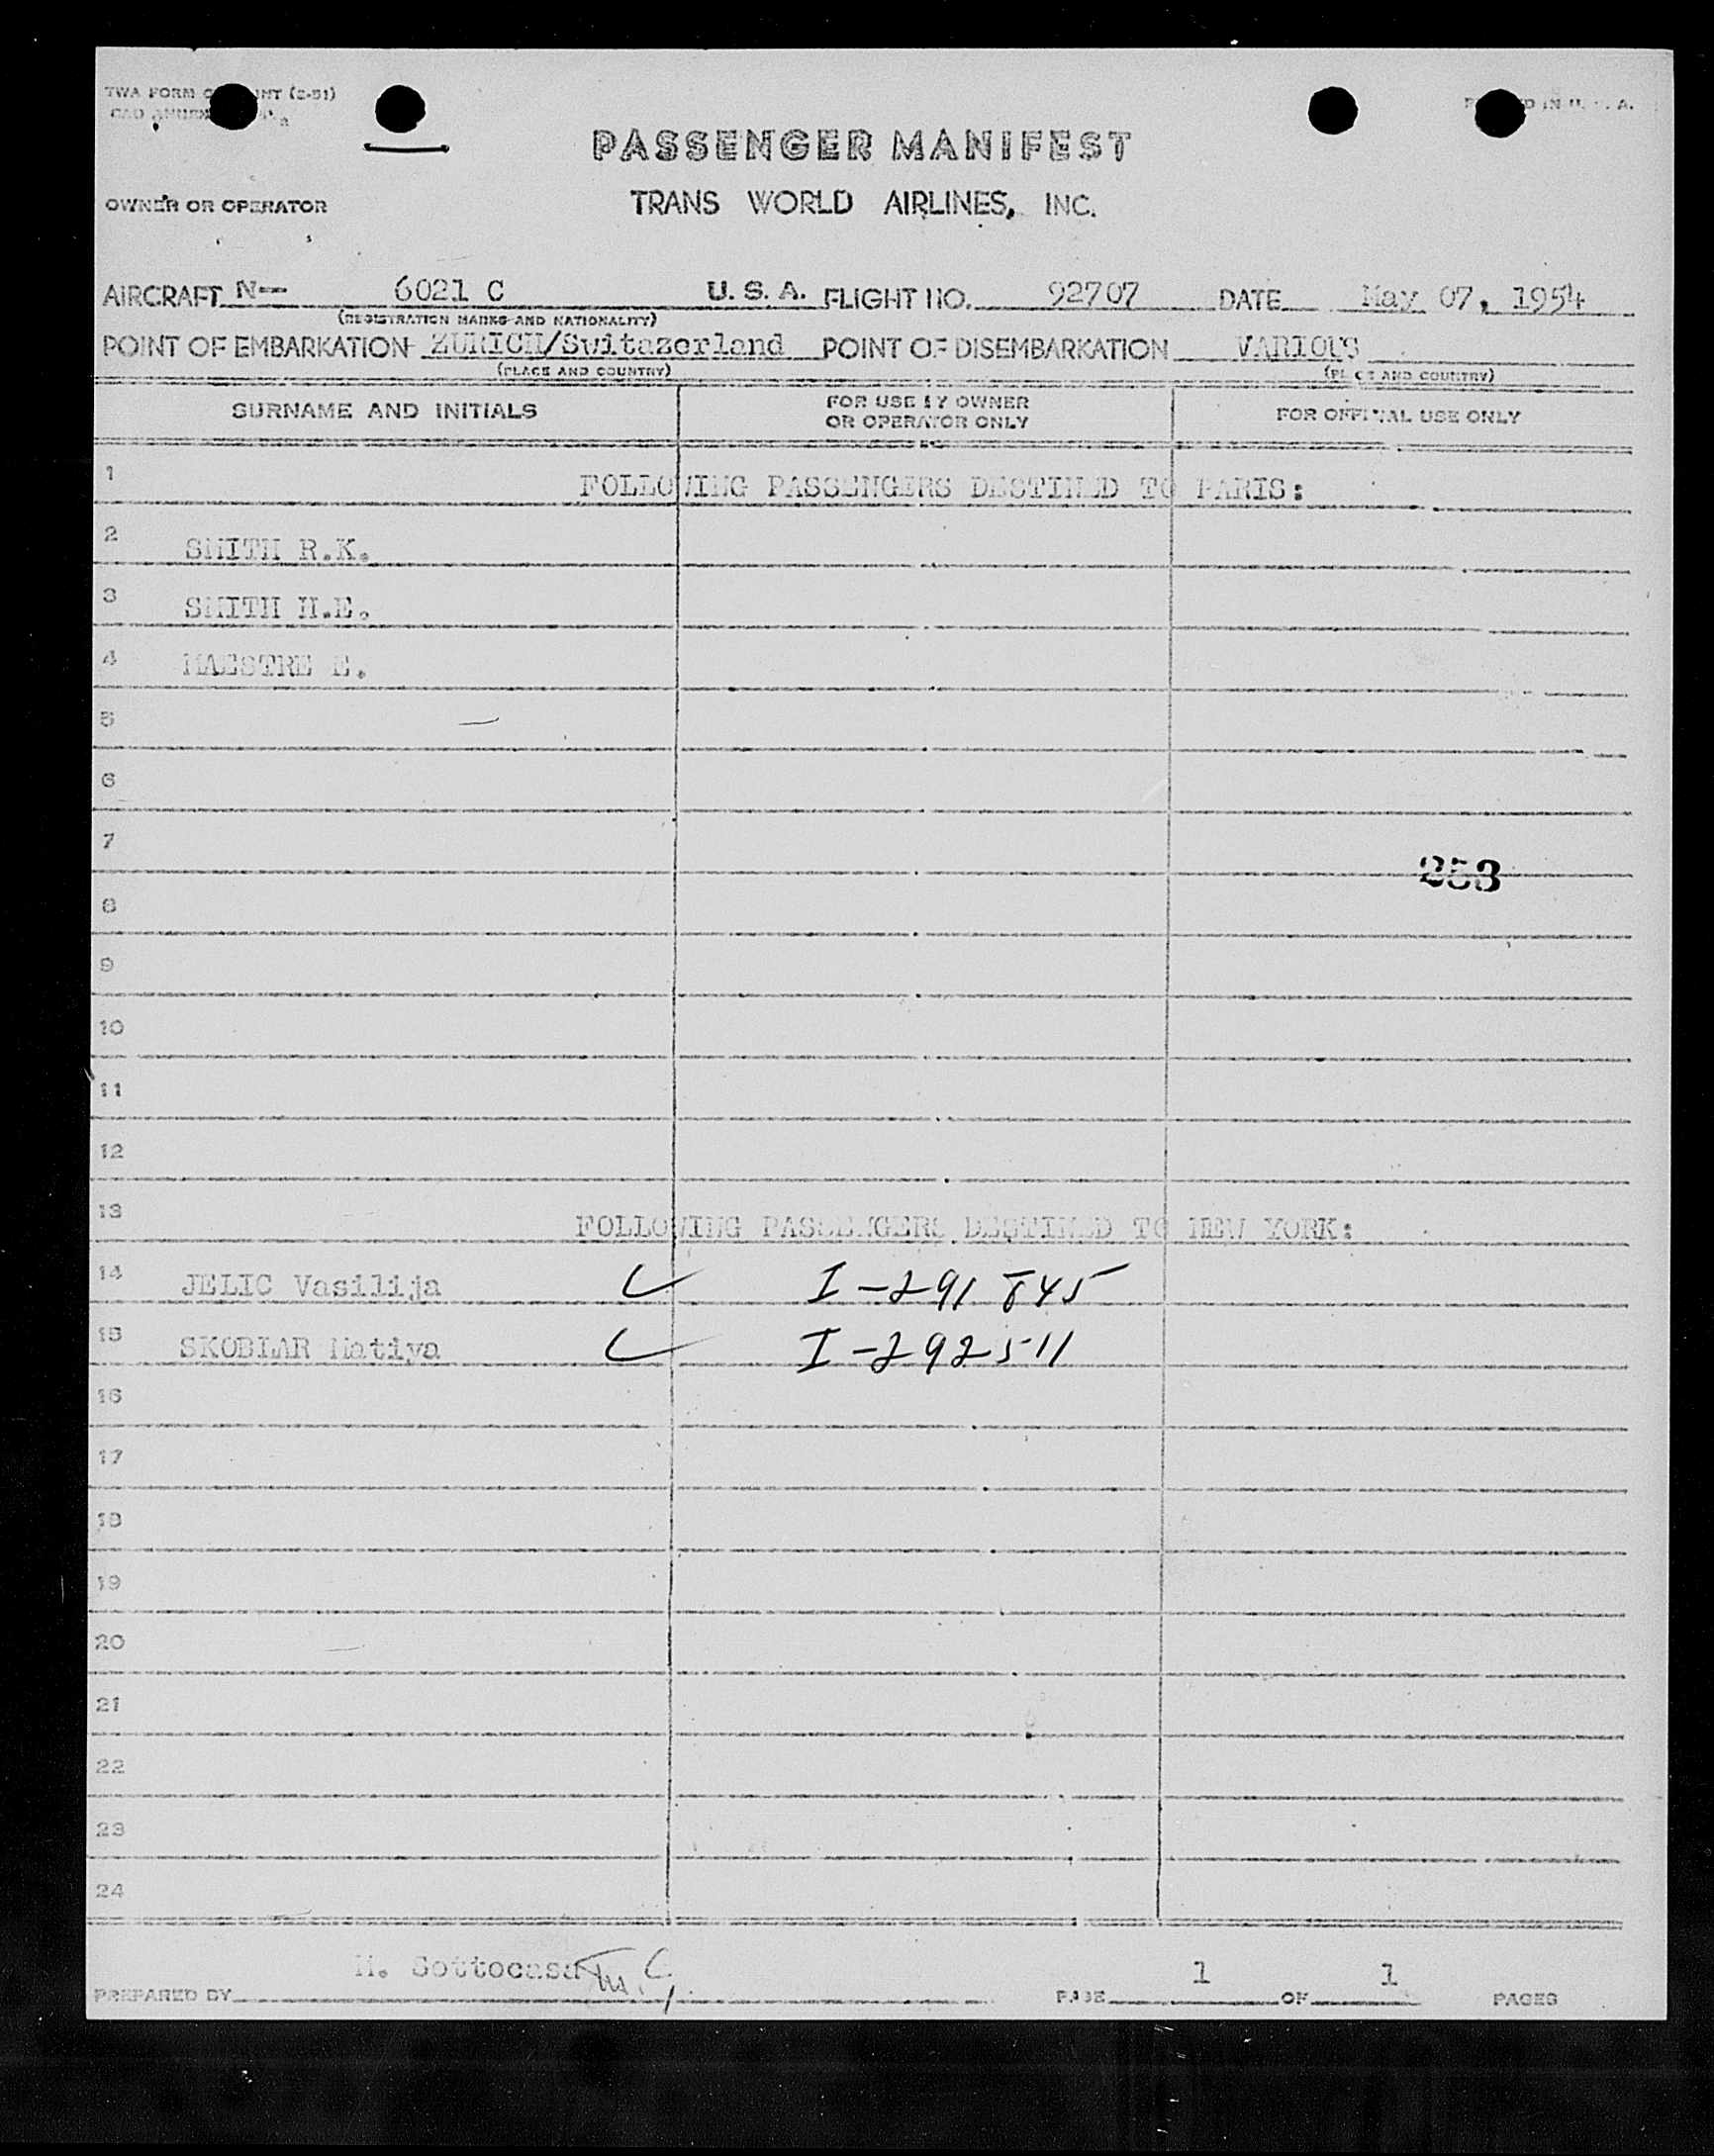 TWA FORM
PASSENGER MANIFEST
OWNER OR OPERATOR
TRANS WORLD AIRLINES, INC.
AIRCRAFT N— 6021 C U. S. A. FLIGHT NO. 92707 DATE May 07, 1954
(REGISTRATION MARKS AND NATIONALITY)
POINT OF EMBARKATION ZURICH/Switazerland POINT OF DISEMBARKATION VARIOUS
(PLACE AND COUNTRY) (PLACE AND COUNTRY)
SURNAME AND INITIALS FOR USE BY OWNER OR OPERATOR ONLY FOR OFFICIAL USE ONLY
1 FOLLOWING PASSENGERS DESTINED TO PARIS:
2 SMITH R.K.
3 SMITH H.E.
4 MAESTRE E.
5
6
7
253
8
9
10
11
12
13 FOLLOWING PASSENGERS DESTINED TO NEW YORK:
14 JELIC Vasilija I-291 845
15 SKOBLAR Matiya I-292511
16
17
18
19
20
21
22
23
24
PREPARED BY M. Sottocasa PAGE 1 OF 1 PAGES